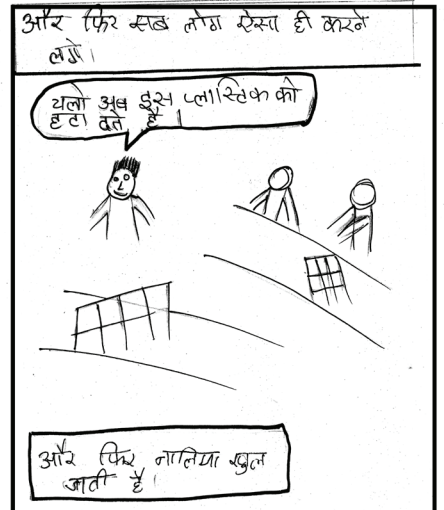 और फिर सब लोग ऐसा ही करने
लगे।
चलो अब इस प्लास्टिक को
हटा देते है।
और फिर नालिया खुल
जाती है।